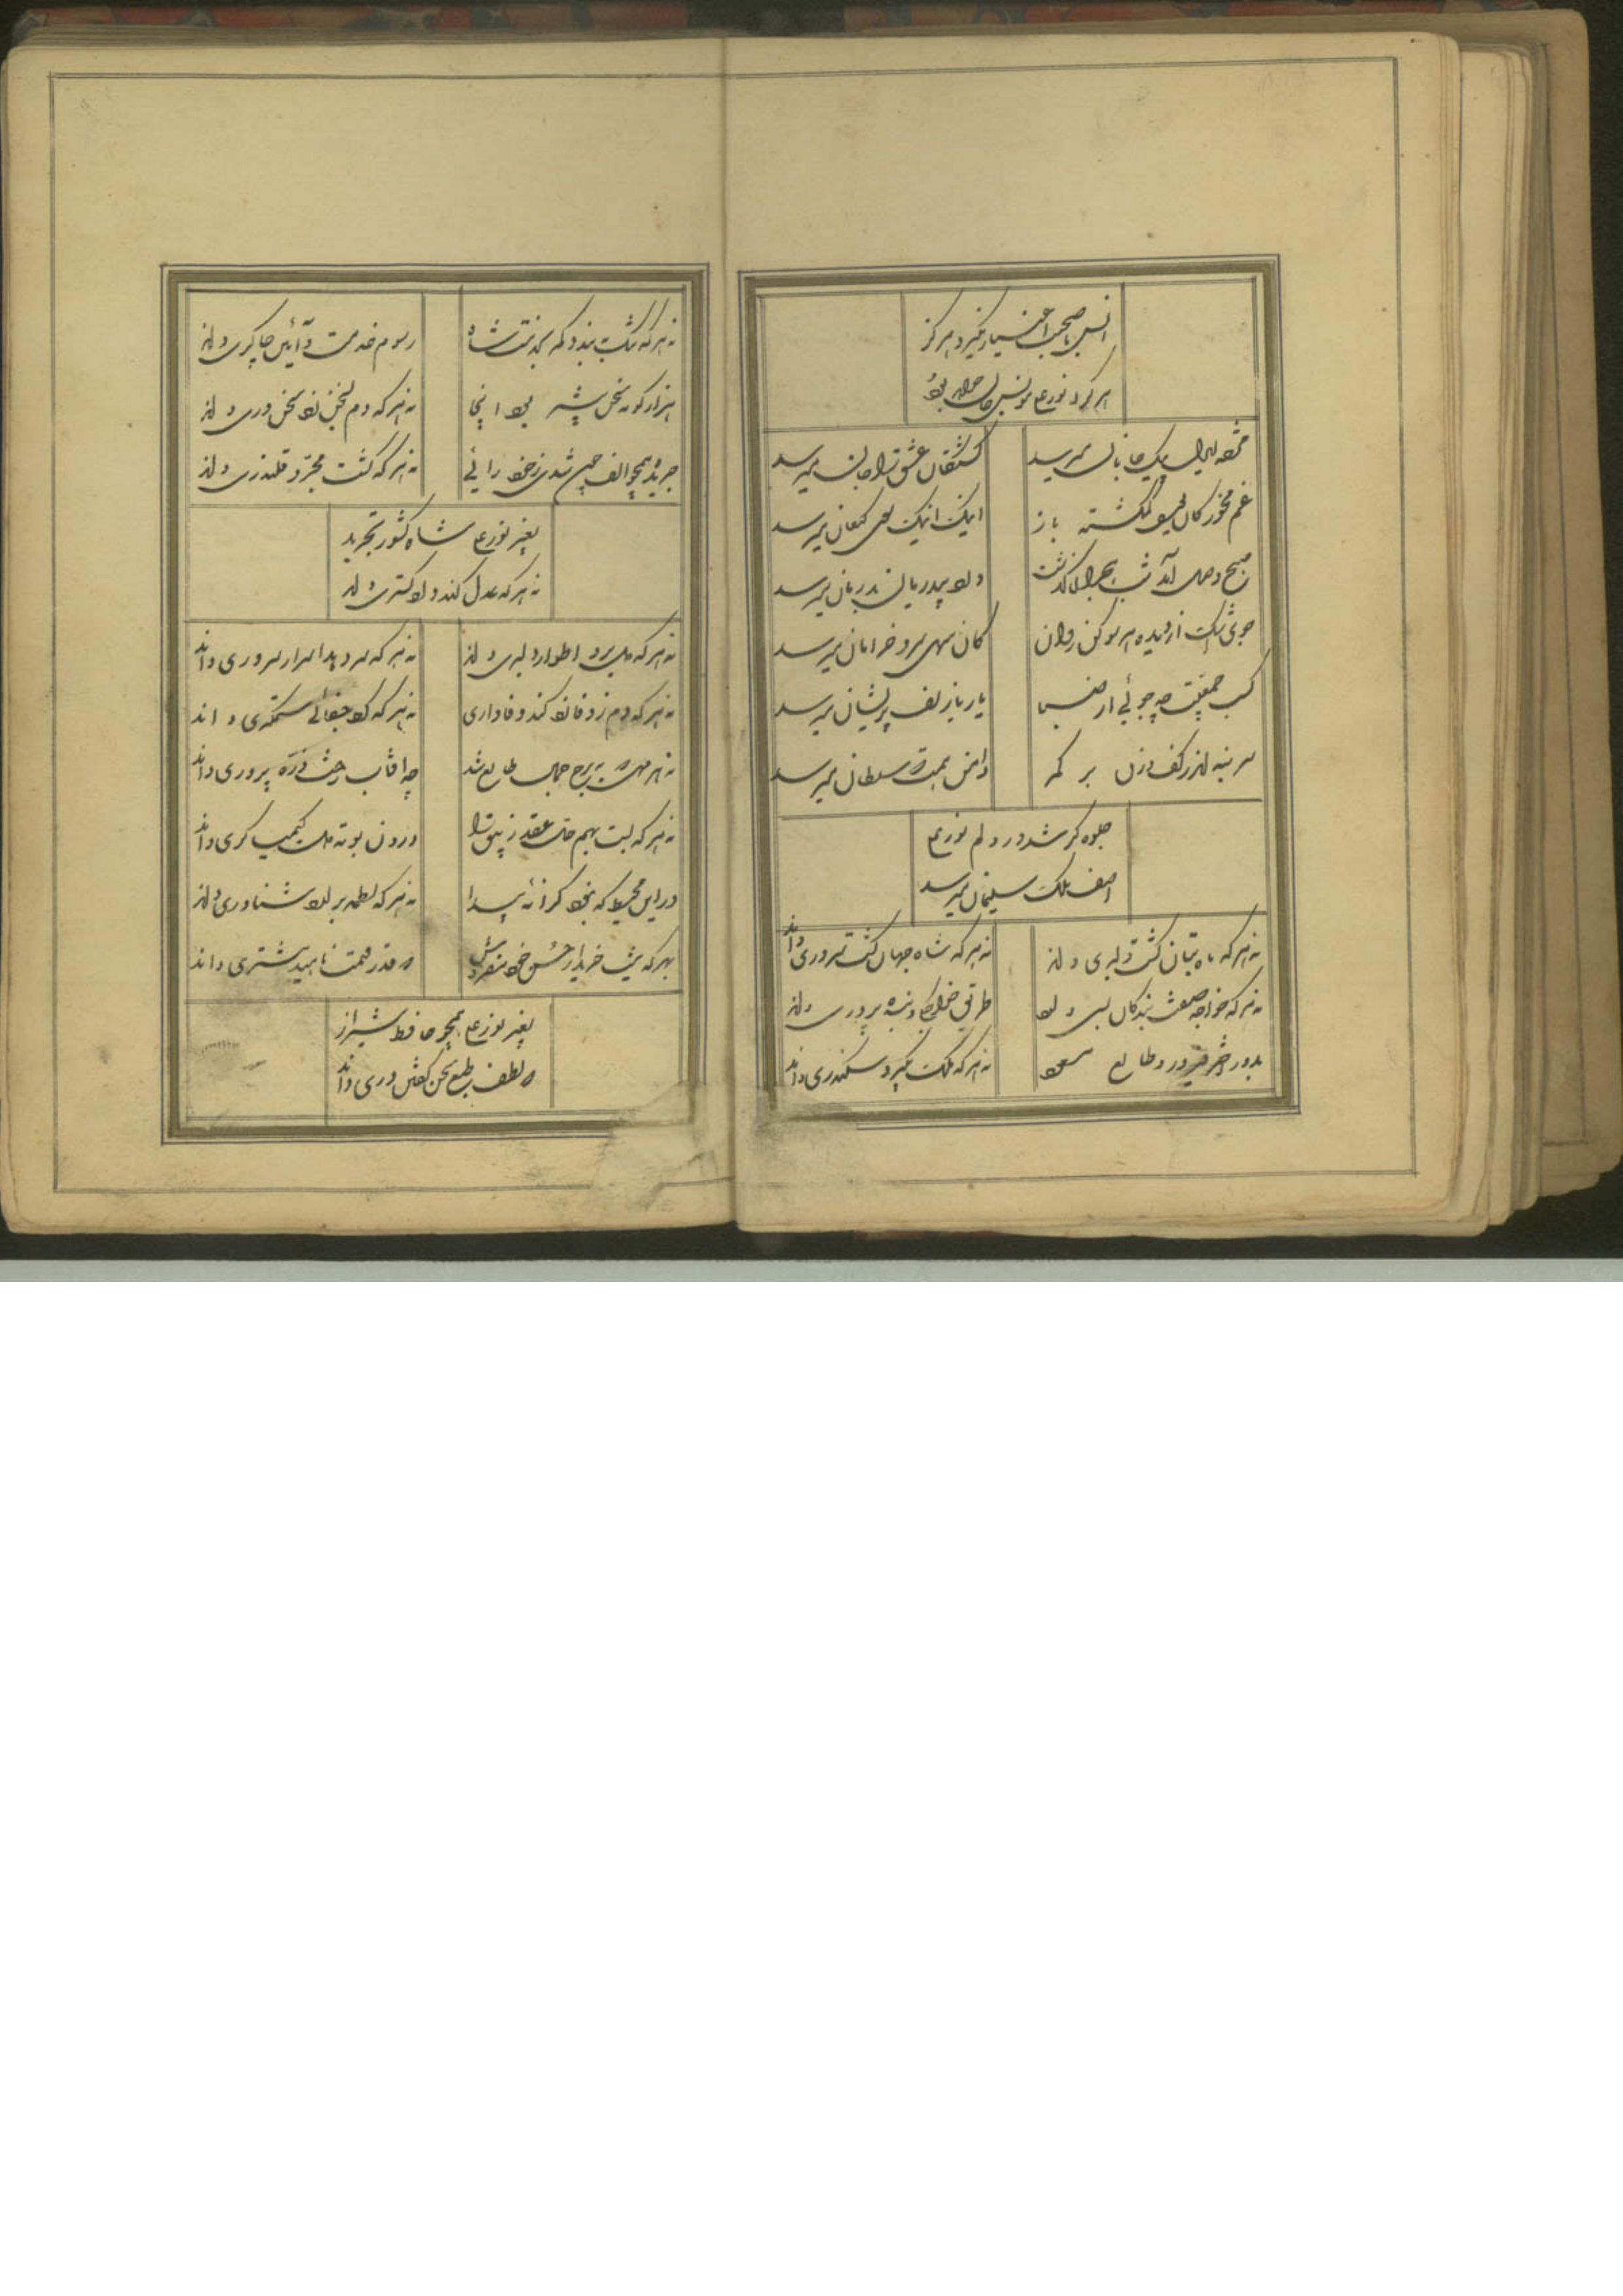 انس با صحبت اغیار نگیرد هرگز
هر که را نورعلی مونس جان خواهد بود
مژده ایدل پیک جانان میرسد کشتگان عشق را جان میرسد
غم مخور کان یوسف گمگشته باز اینک اینک سوی کنعان میرسد
صبح وصل آمد شب هجران گذشت درد بیدرمان بدرمان میرسد
جوی اشک از دیده هر سو کن روان کان سهی سرو خرامان میرسد
کسب جمعیت چه جوئی از یار باز زلف پریشان میرسد
سر بنه اندر کف و زن بر کمر دامن همت سلطان میرسد
جلوه گر شد در دلم نورعلی
آصف ملک سلیمان میرسد
نه هر که ماه بتان گشت دلبری داند نه هر که شاه جهان گشت سروری داند
نه هر که خواجه صفت بندگان بسی دارد طریق خواجگی و بنده پروری داند
بدور اختر فیروز و طالع مسعود نه هر که ملک بگیرد سکندری داند
نه هر که بست بخدمت شاه رسوم خدمت و آئین چاکری داند
هزار گونه سخن بود اینجا نه هر که دم ز سخن زد سخنوری داند
جریده همچو الف چون شدی ز خود رائی نه هر که گشت مجرد قلندری داند
بغیر نورعلی شاه کشور تجرید
نه هر که عدل کند دادگستری داند
نه هر که دل برد اطوار دلبری داند نه هر که سر دهد اسرار سروری داند
نه هر که دم ز وفا زد کند وفاداری نه هر که کرد جفائی ستمگری داند
نه هر مهی که به برج جمال طالع شد چه آفتاب رخت ذره پروری داند
نه هر که بست بهم عقد زیبق را درون بوته دل کیمیاگری داند
در این محیط که نبود کرانه پیدا نه هر که لطمه برآرد شناوری داند
بهر که نیست خریدار حسن خود مفروش که قدر و قیمت ناهید مشتری داند
بغیر نورعلی همچو حافظ شیراز
که لطف طبع سخن گفتن دری داند